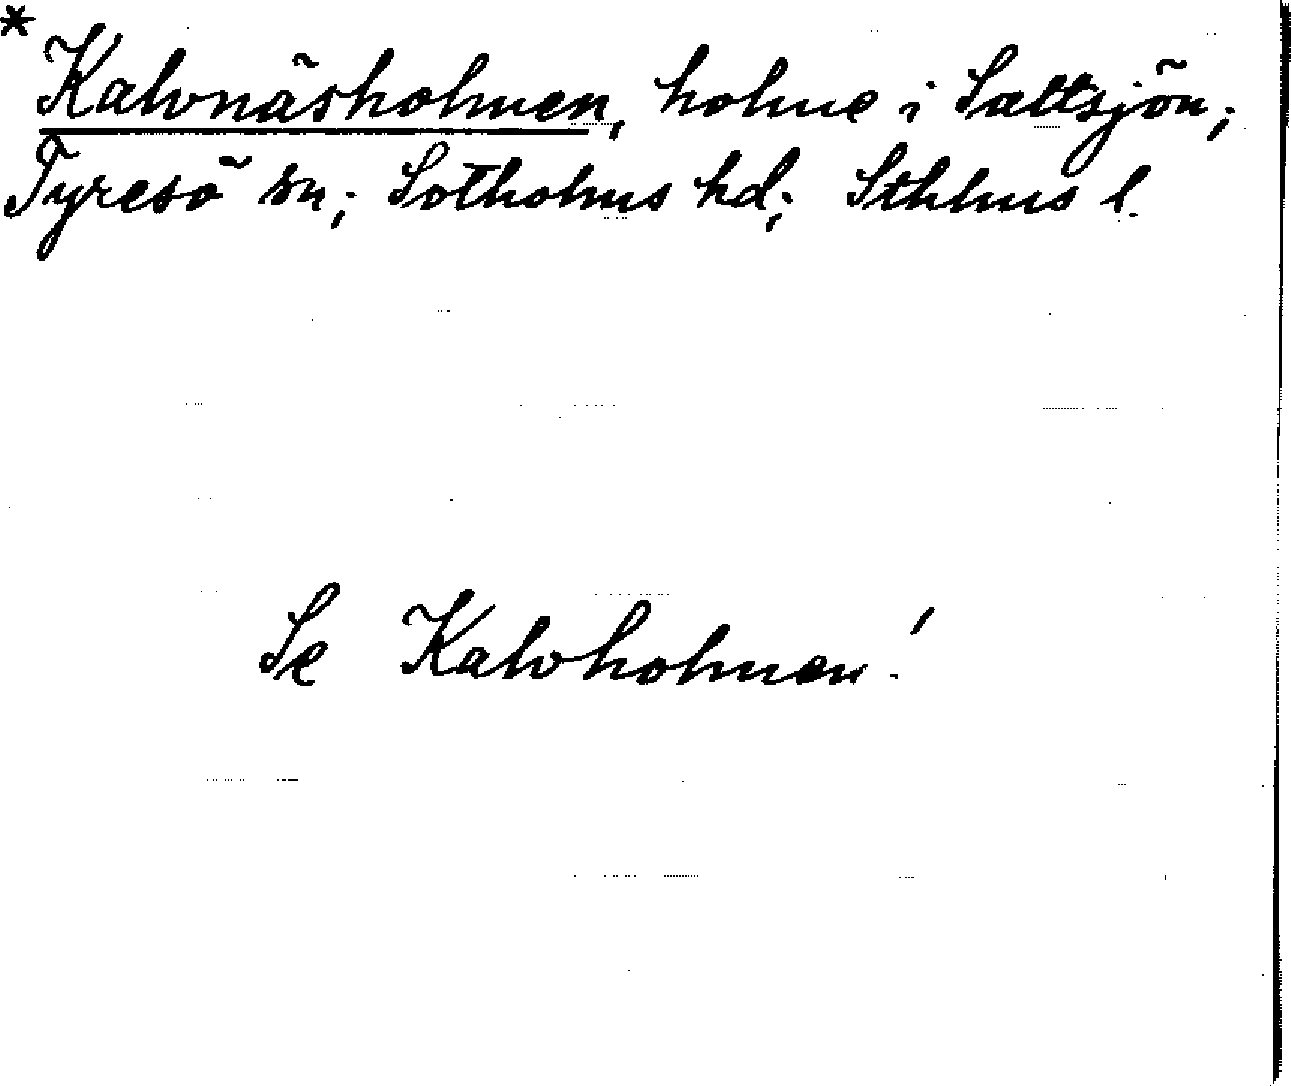 * Kalvnäsholmen, holme i Saltsjön;
Tyresö sn; Sotholms hd; Sthlms l.
Se Kalvholmen!